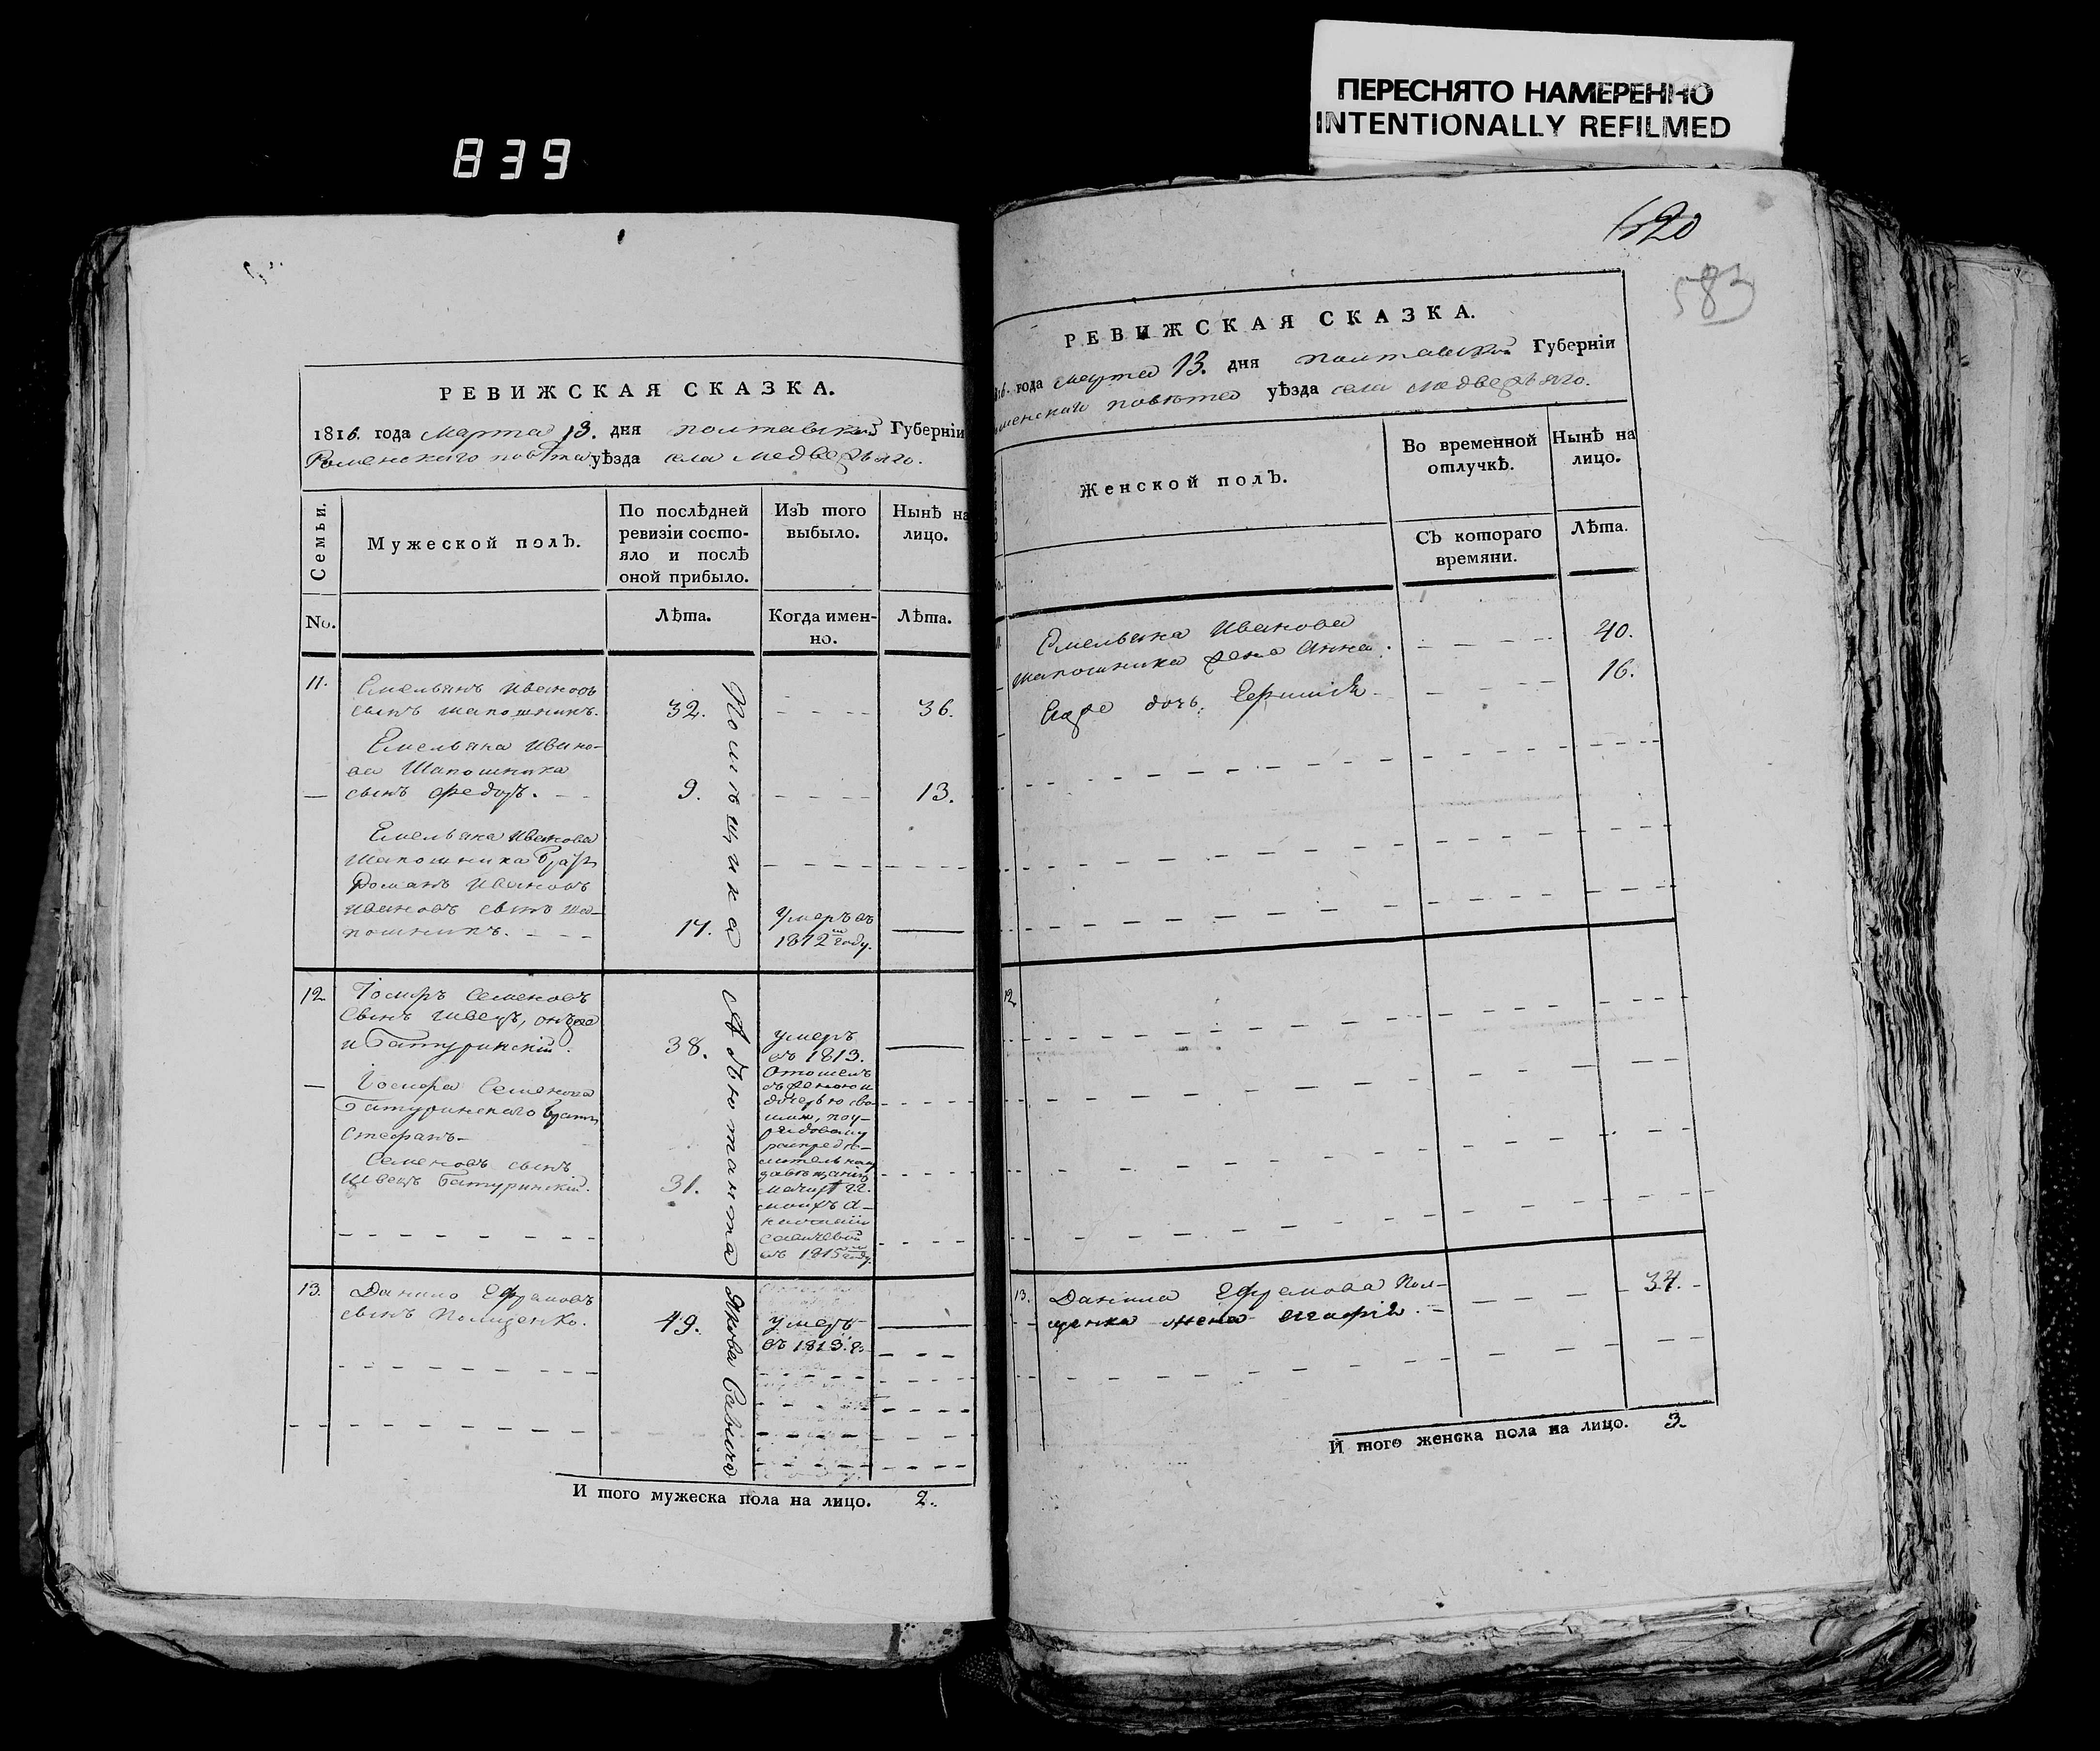 ПЕРЕСНЯТО НАМЕРЕННО
INTENTIONALLY REFILMED
839
620
583
РЕВИЖСКАЯ СКАЗКА.
1816. года Марта 13. дня полтавской Губерніи
Роменскаго повѣта уѣзда села Медвежьяго.
Семьи.
Мужеской полъ.
По послѣдней
ревизіи состо-
яло и послѣ
оной прибыло.
Изъ того
выбыло.
Нынѣ на
лицо.
No.
Лѣта.
Когда имен-
но.
Лѣта.
11. Емельянъ Ивановъ
сынъ шапошникъ. 32. 36.
Емельяна Ивано-
ва Шапошника
сынъ Федоръ. 9. 13.
Емельяна Иванова
Шапошника братъ
Романъ Ивановъ
Ивановъ сынъ Ша-
пошникъ. 14. Умеръ въ
1812м году.
12 Іосифъ Семеновъ
сынъ швецъ, онъже
и Батуринскій. 38. умеръ
въ 1813.
Іосифа Семенова
Батуринскаго братъ
Стефанъ
Семеновъ сынъ
Швецъ Батуринскій. 31.
Отошелъ
съ женою и
дочерью сво-
въ 1815м году.
13. Данило Ефремовъ
сынъ Полщенко. 49. умеръ
въ 1813. г.
Помѣщика
Адъютанта Якова Савича
И того мужеска пола на лицо. 2.
РЕВИЖСКАЯ СКАЗКА.
816. года Марта 13. дня полтавской Губерніи
менскаго повѣта уѣзда села Медвежьяго.
Женской полъ.
Во временной
отлучкѣ.
Нынѣ на
лицо.
Съ котораго
времяни.
Лѣта.
Емельяна Иванова
шапошника жена Анна. 40.
Егоже дочь Ефимія 16.
12.
13. Данила Ефремова Пол-
щенка жена Агафія. 34.
И того женска пола на лицо. 3.